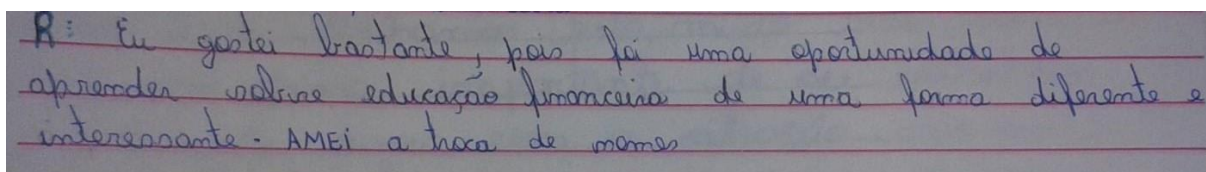 R: Eu gostei bastante, pois foi uma oportunidade de
aprender sobre educação financeira de uma forma diferente e
interessante. AMEi a troca de memes